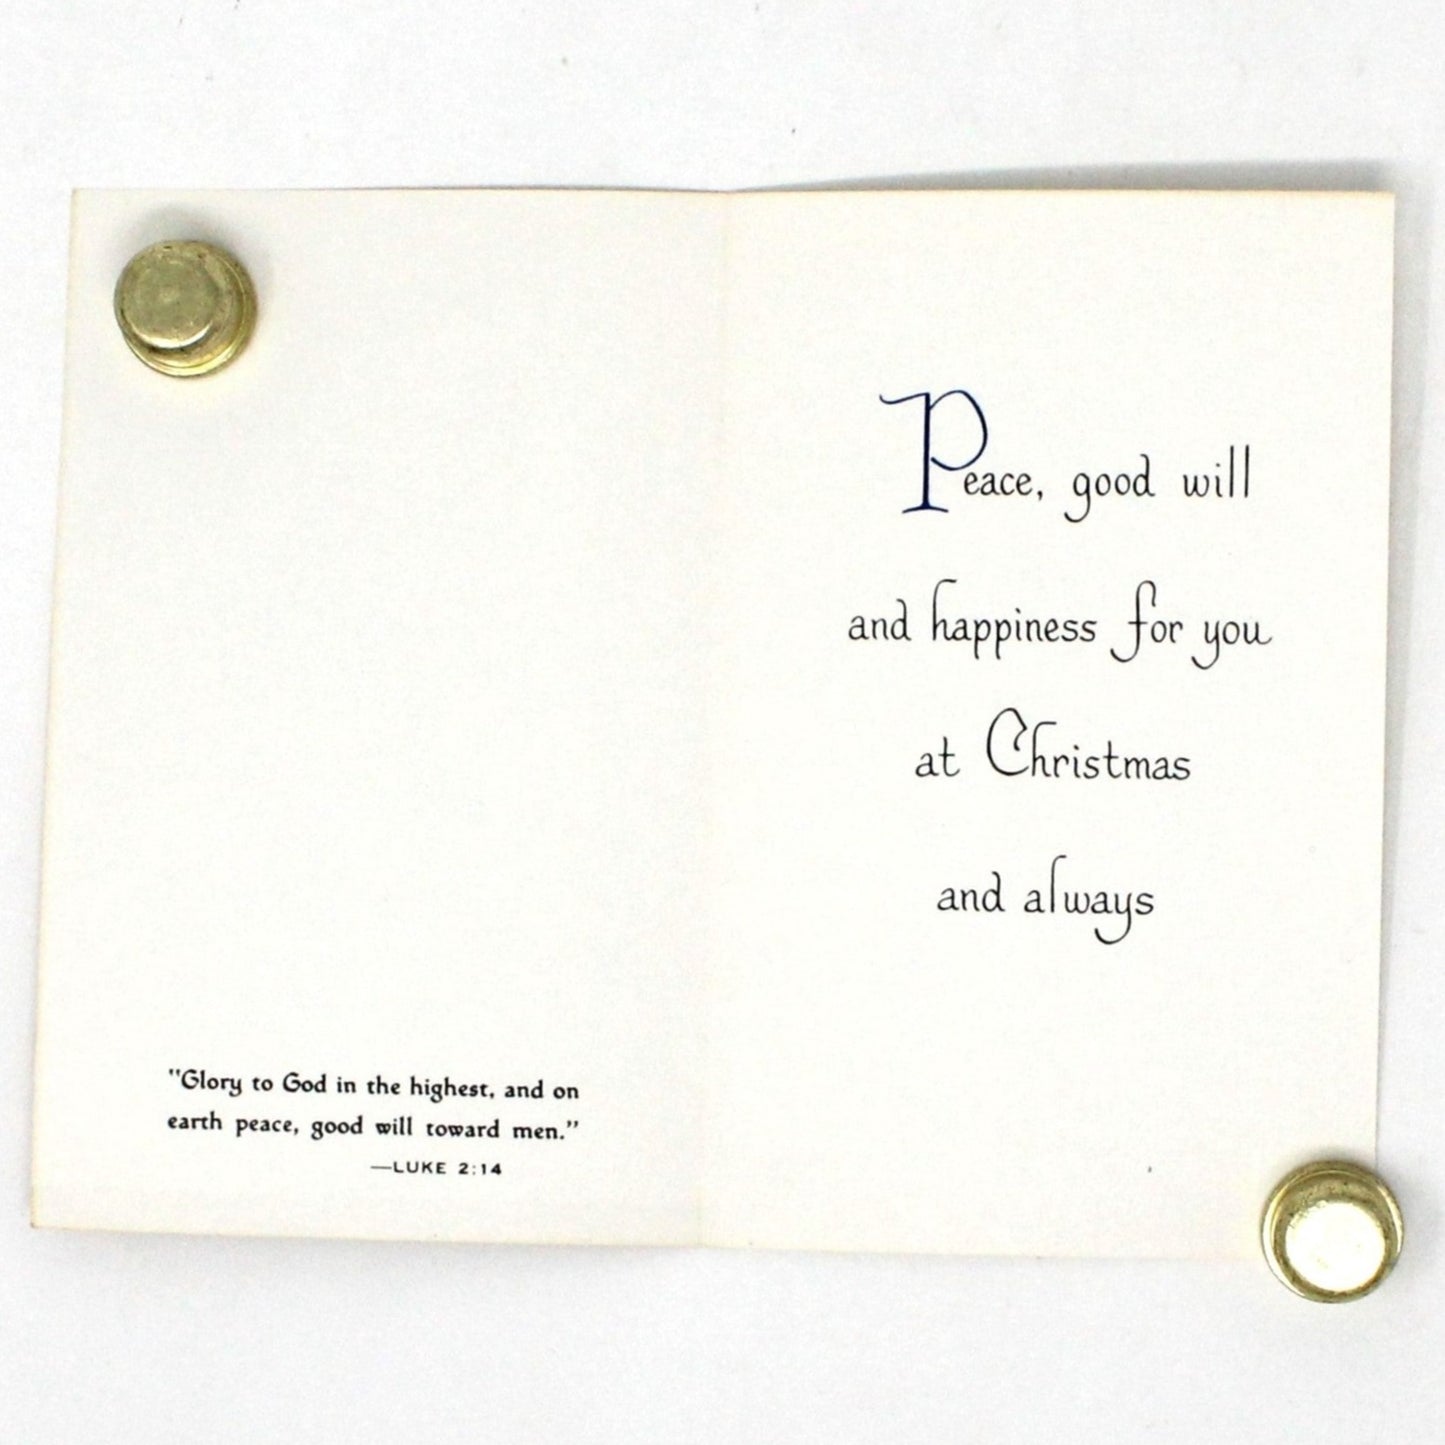 "Glory to God in the highest, and on
earth peace, good will toward men."
—LUKE 2:14
Peace, good will
and happiness for you
at Christmas
and always